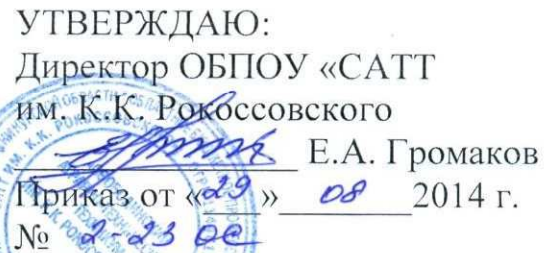 УТВЕРЖДАЮ:
Директор ОБПОУ «САТТ
им. К.К. Рокоссовского
Е.А. Громаков
Приказ от «29» 08 2014 г.
№ 2-23 ОС